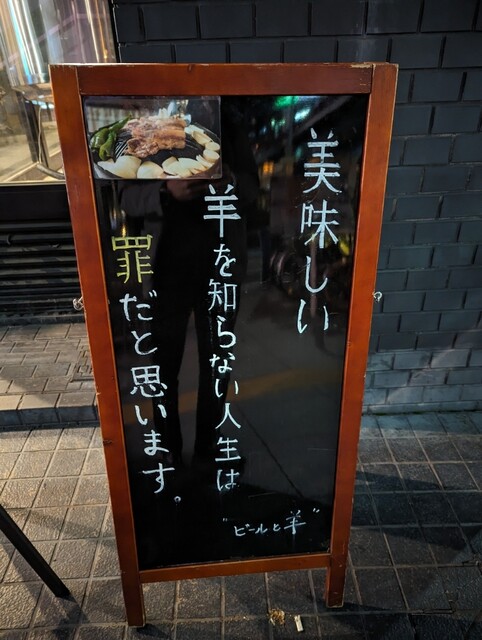 美味しい
羊を知らない人生は
罪だと思います。
"ビールと羊"